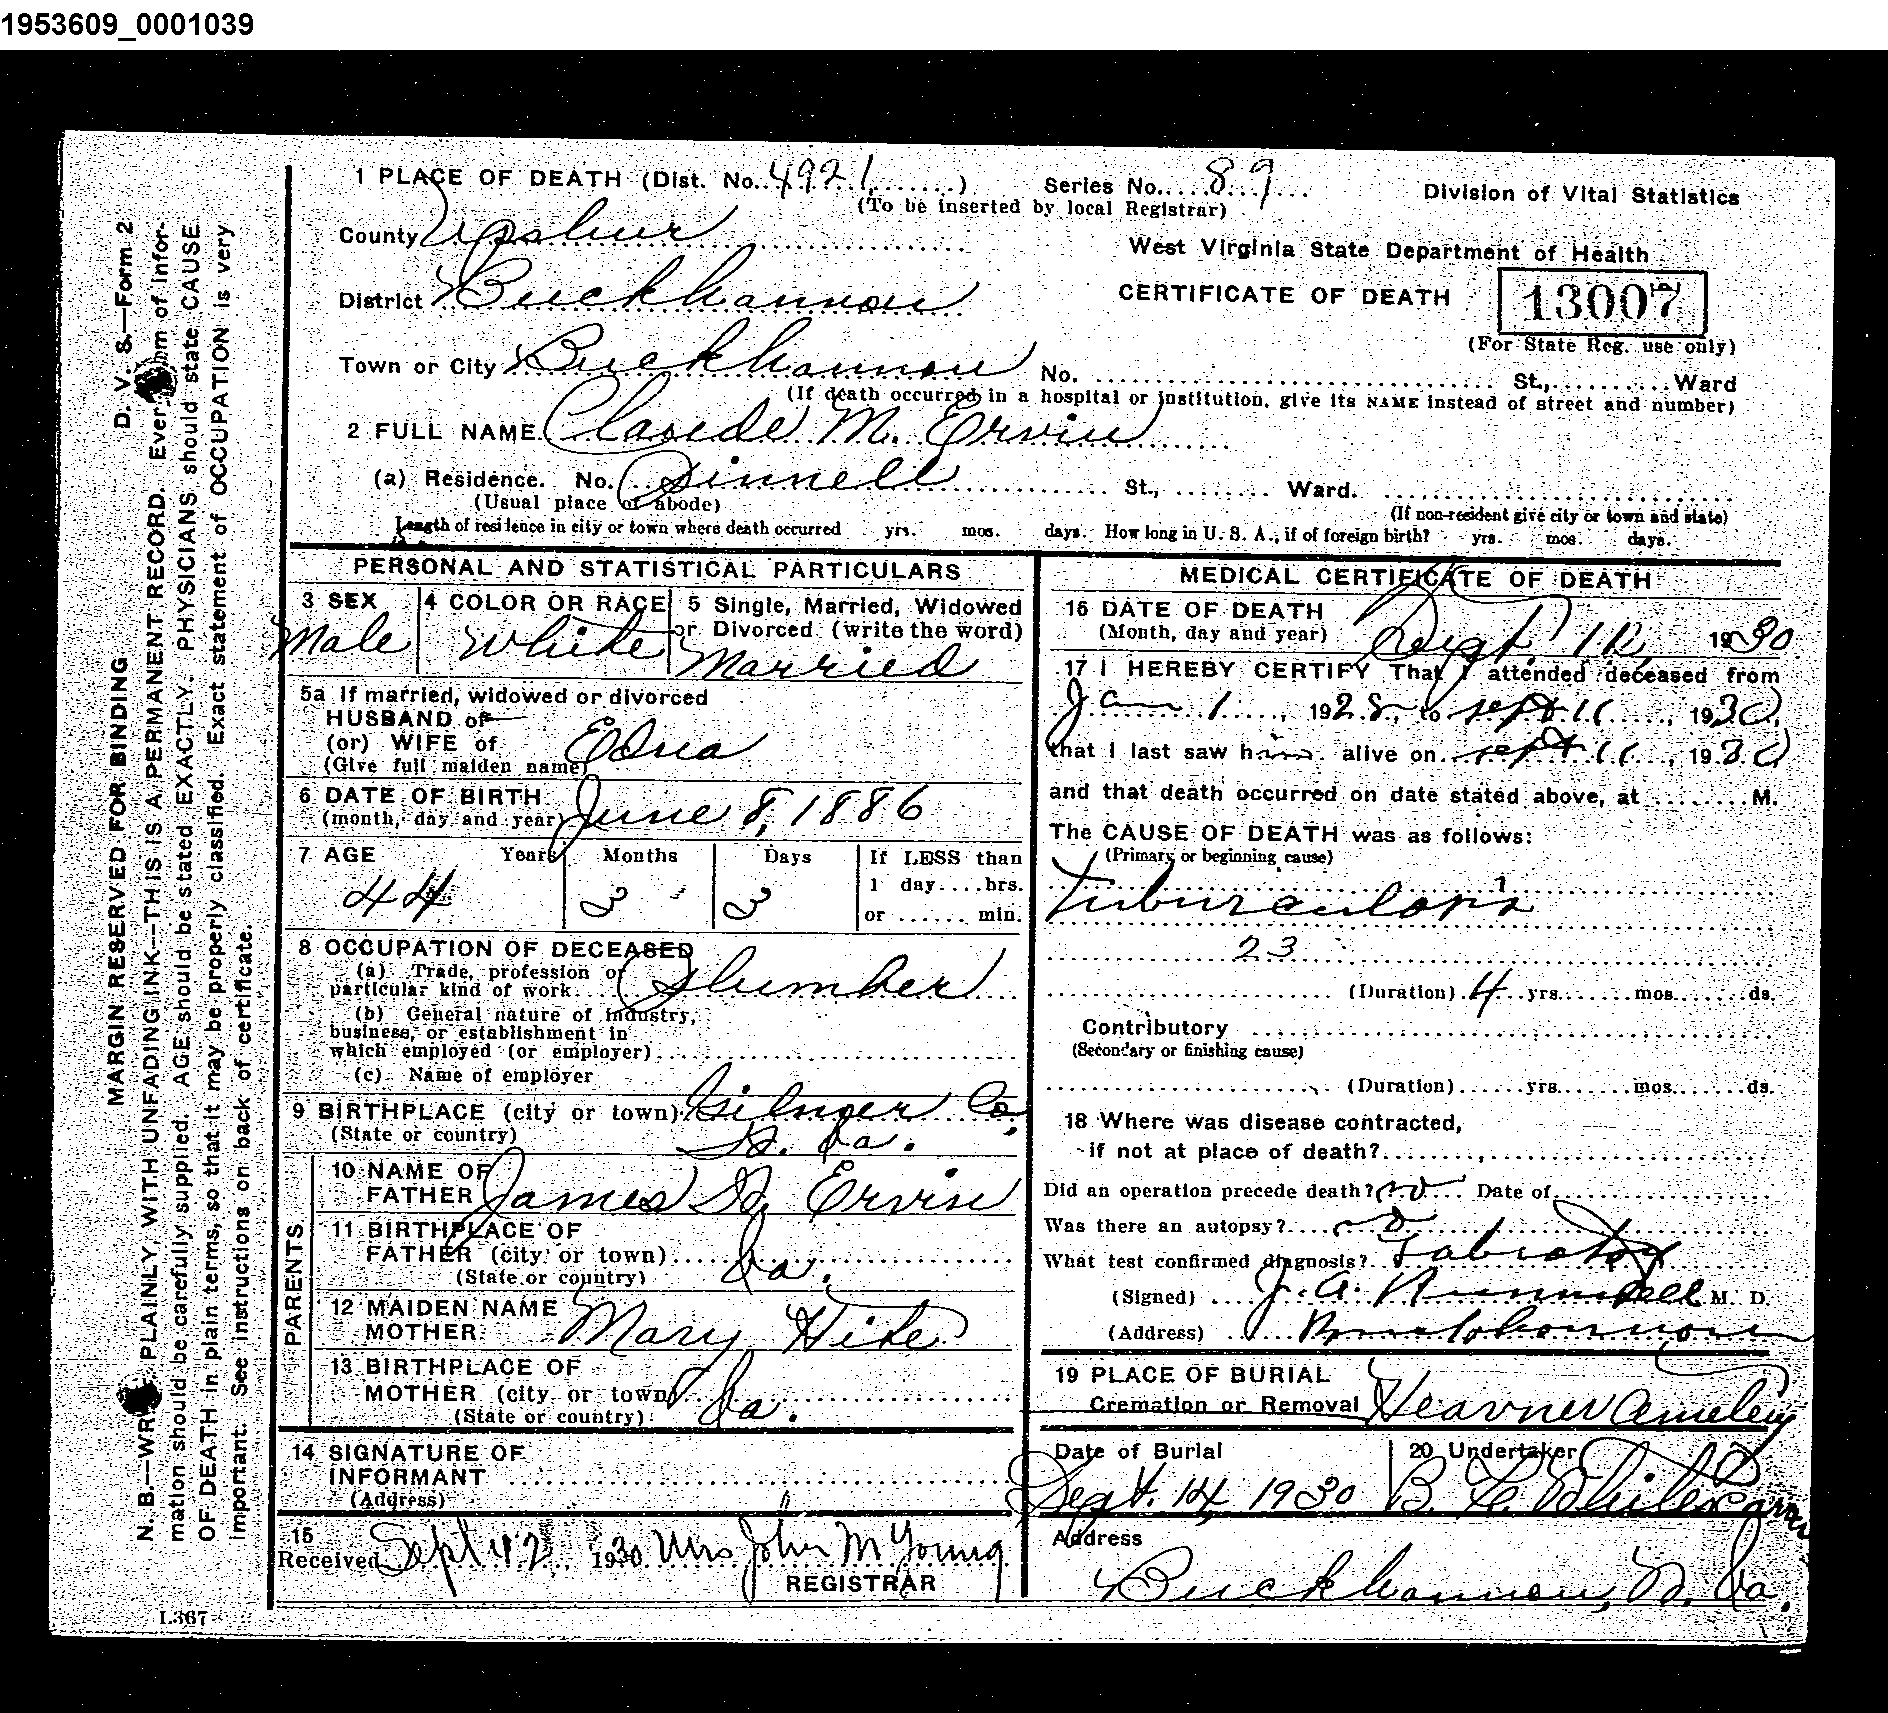 1953609_0001039
1 PLACE OF DEATH (Dist. No. 4921 ) Series No. 89 Division of Vital Statistics
(To be inserted by local Registrar)
County Upshur
West Virginia State Department of Health
District Buckhannon
CERTIFICATE OF DEATH 13007
(For State Reg. use only)
Town or City Buckhannon No. St., Ward
(If death occurred in a hospital or institution, give its NAME instead of street and number)
2 FULL NAME Claude M. Ervin
(a) Residence. No. Pinnell St., Ward.
(Usual place of abode) (If non-resident give city or town and state)
Length of residence in city or town where death occurred yrs. mos. days. How long in U. S. A., if of foreign birth? yrs. mos. days.
PERSONAL AND STATISTICAL PARTICULARS
3 SEX 4 COLOR OR RACE 5 Single, Married, Widowed
or Divorced (write the word)
Male White Married
5a If married, widowed or divorced
HUSBAND of
(or) WIFE of Edna
(Give full maiden name)
6 DATE OF BIRTH
(month, day and year) June 8, 1886
7 AGE Years Months Days If LESS than
1 day....hrs.
44 3 3 or ...... min.
8 OCCUPATION OF DECEASED
(a) Trade, profession or
particular kind of work Plumber
(b) General nature of industry,
business, or establishment in
which employed (or employer)
(c) Name of employer
9 BIRTHPLACE (city or town) Gilmer Co.
(State or country) W. Va.
PARENTS
10 NAME OF
FATHER James W. Ervin
11 BIRTHPLACE OF
FATHER (city or town)
(State or country) Va.
12 MAIDEN NAME
MOTHER Mary Hite
13 BIRTHPLACE OF
MOTHER (city or town)
(State or country) Va.
14 SIGNATURE OF
INFORMANT
(Address)
15
Received Sept 12 1930 Mrs John M Young
REGISTRAR
MEDICAL CERTIFICATE OF DEATH
16 DATE OF DEATH
(Month, day and year) Sept. 1930
17 I HEREBY CERTIFY That I attended deceased from
Jan 1, 1928, to Sept 11, 1930,
that I last saw him alive on Sept 11, 1930
and that death occurred on date stated above, at M.
The CAUSE OF DEATH was as follows:
(Primary or beginning cause)
Tuburculosis
23
(Duration) 4 yrs. mos. ds.
Contributory
(Secondary or finishing cause)
(Duration) yrs. mos. ds.
18 Where was disease contracted,
if not at place of death?
Did an operation precede death? no Date of
Was there an autopsy? no
What test confirmed diagnosis?
(Signed) J. A. M. D.
(Address) Buckhannon
19 PLACE OF BURIAL
Cremation or Removal Heavner
Date of Burial 20 Undertaker
Sept. 14, 1930 B.
Address
Buckhannon, W. Va.
D. V. S.—Form 2
MARGIN RESERVED FOR BINDING
N. B.—WRITE PLAINLY, WITH UNFADING INK—THIS IS A PERMANENT RECORD. Every item of infor-
mation should be carefully supplied. AGE should be stated EXACTLY. PHYSICIANS should state CAUSE
OF DEATH in plain terms, so that it may be properly classified. Exact statement of OCCUPATION is very
important. See instructions on back of certificate.
L367